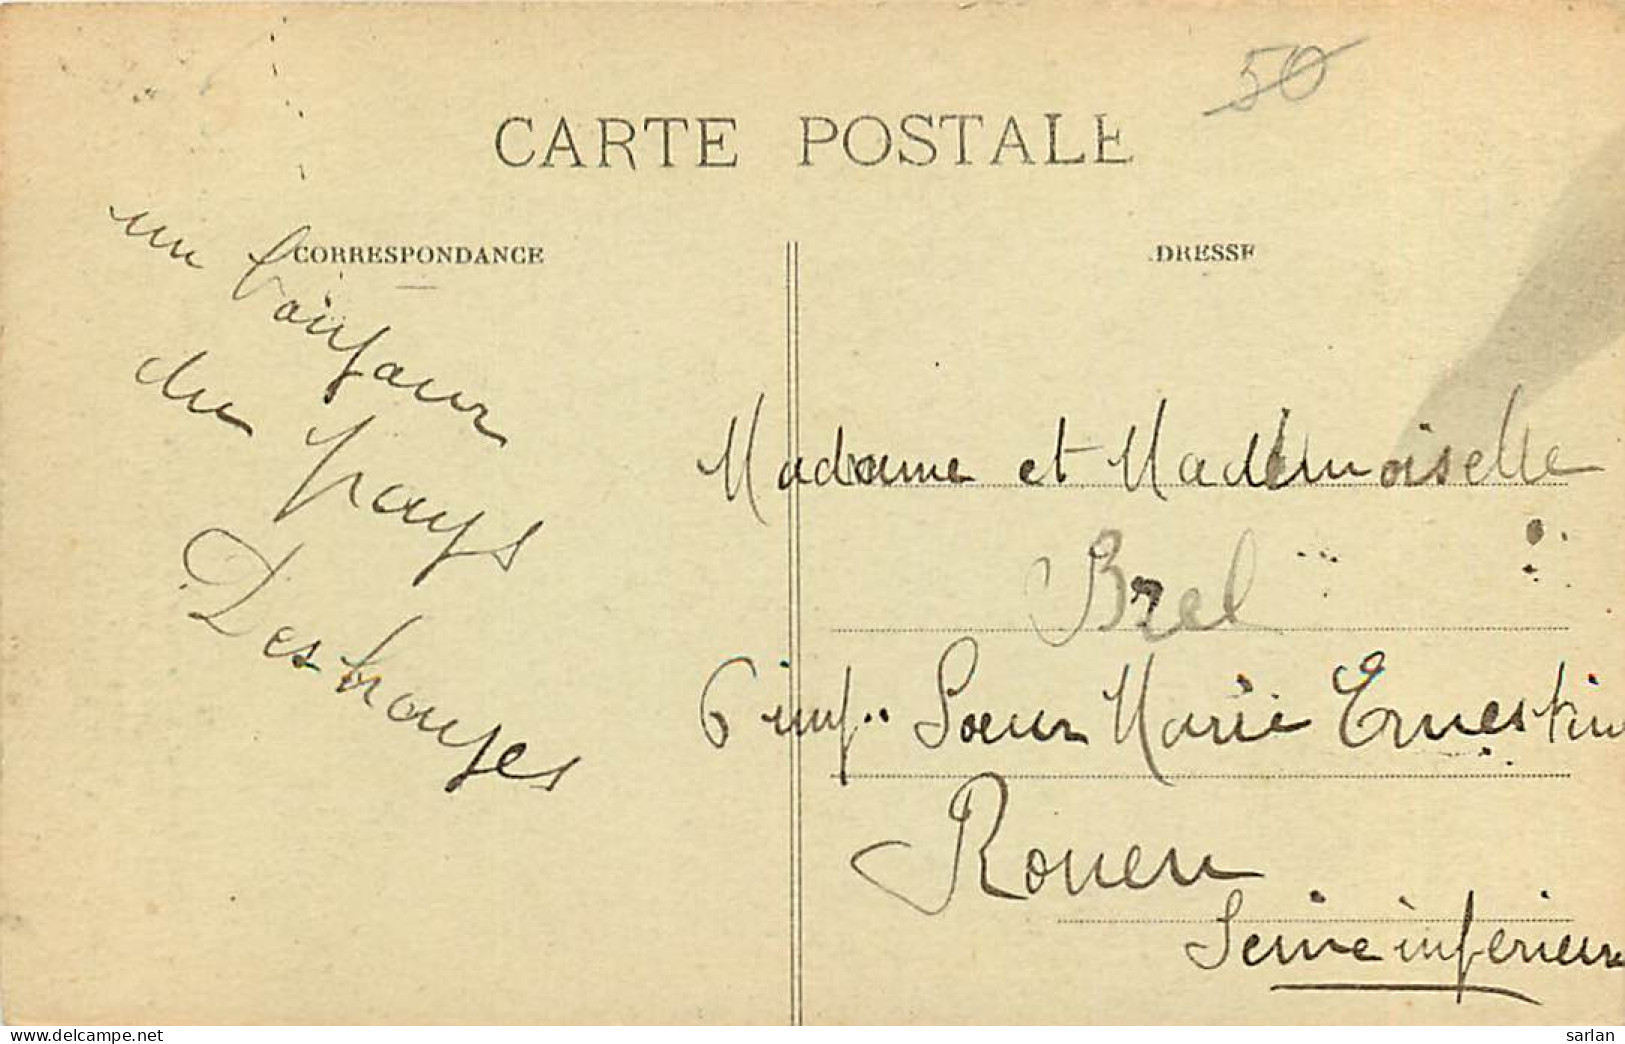 50
CARTE POSTALE
CORRESPONDANCE
DRESSE
un bonjour
du pays
Deshayes
Madame et Mademoiselle
Brel
6 imp.. Soeur Marie Ernestin
Rouen
Seine inférieur
www.delcampe.net
sarlan